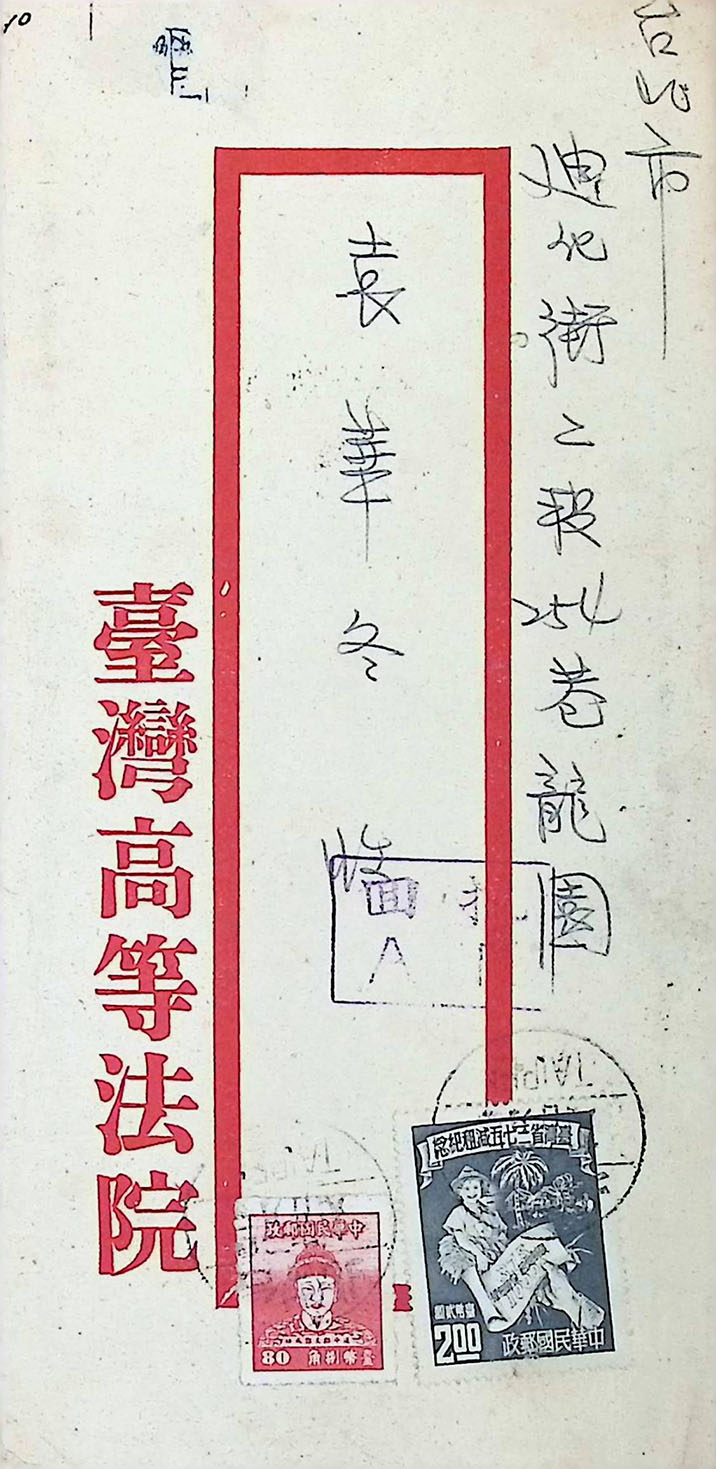 台北市
迪化街二段254巷龍園
袁華冬 收
臺灣高等法院
臺灣省三七五減租紀念
臺幣貳圓
2.00
中華民國郵政
中華民國郵政
80
臺幣捌角
TAIPEI
TAIPEI
A